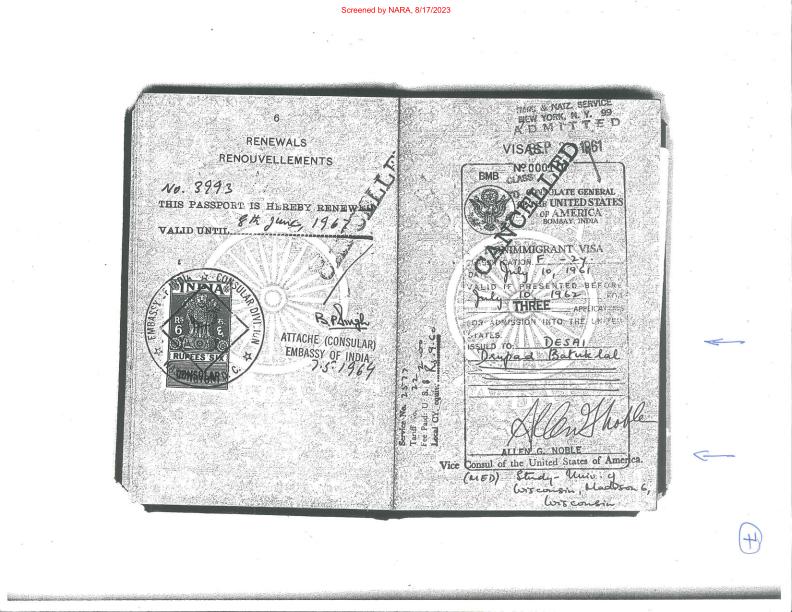 Screened by NARA, 8/17/2023
6
RENEWALS
RENOUVELLEMENTS
No. 3993
THIS PASSPORT IS HEREBY RENEWED
VALID UNTIL 8th June, 1967
CANCELLED
EMBASSY OF INDIA ☆ CONSULAR DIVISION
INDIA
RS 6
RUPEES SIX
CONSULAR
B P Singh
ATTACHE (CONSULAR)
EMBASSY OF INDIA
7.5.1964
& NATZ. SERVICE
NEW YORK, N. Y. 99
ADMITTED
VISAS
SEP 1961
CLASS
BMB
CONSULATE GENERAL
OF THE UNITED STATES
OF AMERICA
BOMBAY, INDIA
CANCELLED
NONIMMIGRANT VISA
CLASSIFICATION F
DATE July 10, 1961
VALID IF PRESENTED BEFORE
July 10, 1962 FOR
THREE APPLICATIONS
FOR ADMISSION INTO THE UNITED
STATES.
ISSUED TO: DESAI
Drupad Batuklal
Service No. 2577
Tariff No. 22
Fee Paid: U. S. $
Local CY. equiv. Rs. 9.60
Allen G Noble
ALLEN G. NOBLE
Vice Consul of the United States of America.
(MED) Study - Univ. of
Wisconsin, Madison 6,
Wisconsin
4